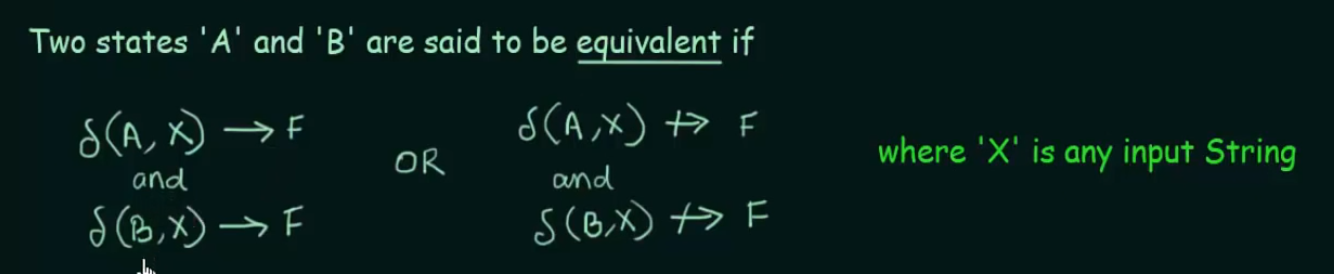 Two states 'A' and 'B' are said to be equivalent if
δ(A, X) → F
and
δ(B, X) → F
OR
δ(A, X) ↛ F
and
δ(B, X) ↛ F
where 'X' is any input String